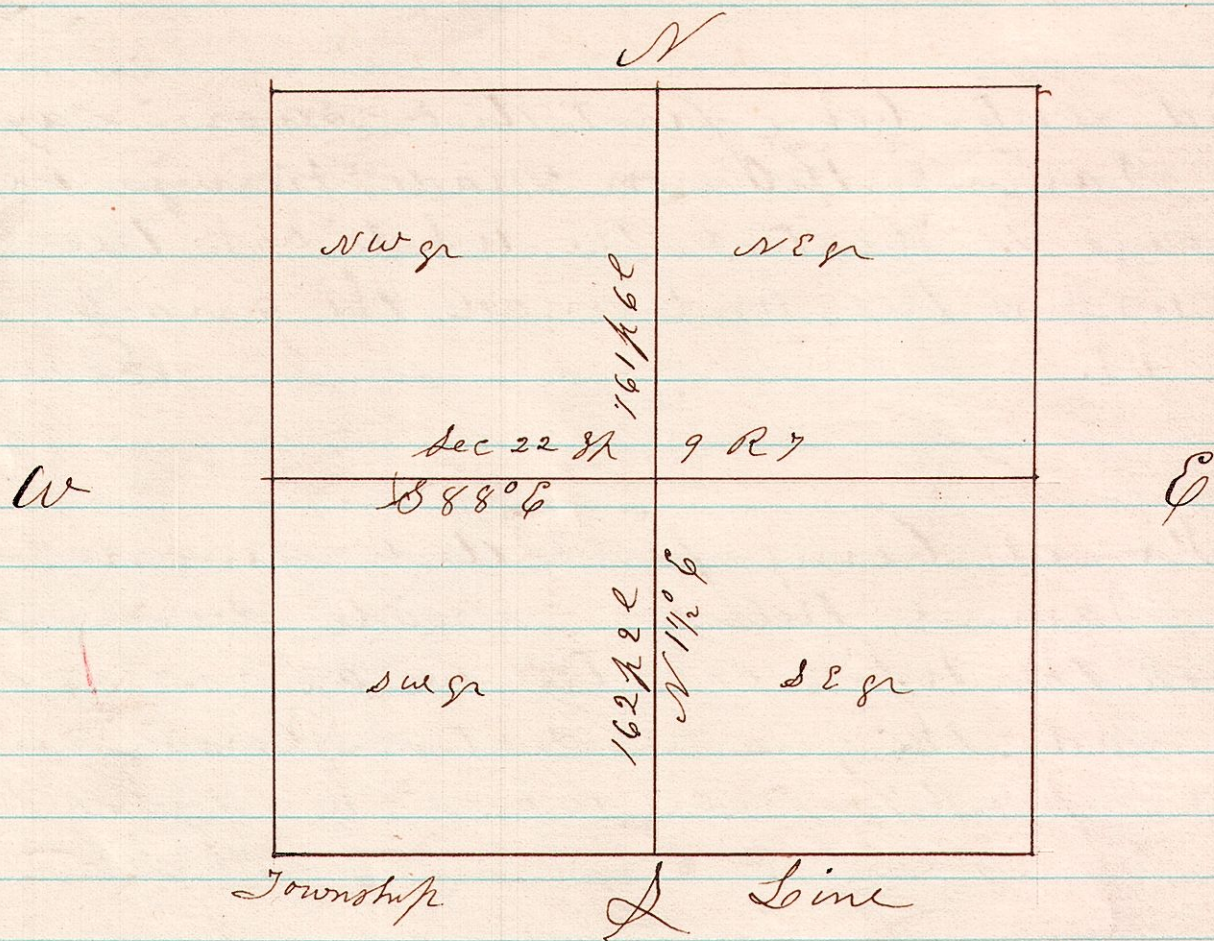 N
NW qr
NE qr
161 p 6 l
Sec 22 Tp 9 R 7
W
E
S 88° E
162 p 2 l
N 1 1/2° E
SW qr
SE qr
Township S Line